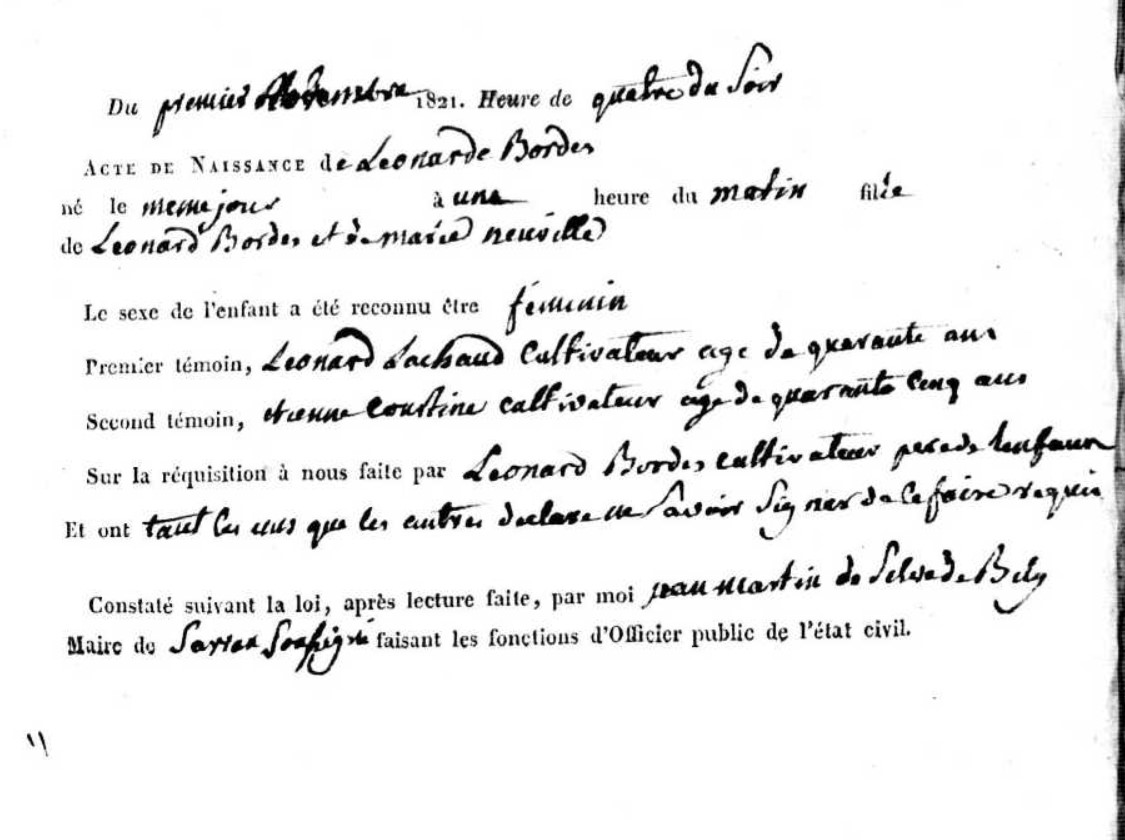 Du premier Novembre 1821. Heure de quatre du Soir
ACTE DE NAISSANCE de Leonarde Bordes
né le meme jour à une heure du matin fille
de Leonard Bordes et de marie neuville
Le sexe de l'enfant a été reconnu être féminin
Premier témoin, Leonard Lachaud Cultivateur age de quarante ans
Second témoin, etienne Coustine caltivateur age de quarante Cinq ans
Sur la réquisition à nous faite par Leonard Bordes cultivateur pere de lenfant
Et ont tant les uns que les autres declare ne Savoir Signer de Ce faire requis
Constaté suivant la loi, après lecture faite, par moi jean martin de Selve de Bity
Maire de Sarran Soussigné faisant les fonctions d'Officier public de l'état civil.